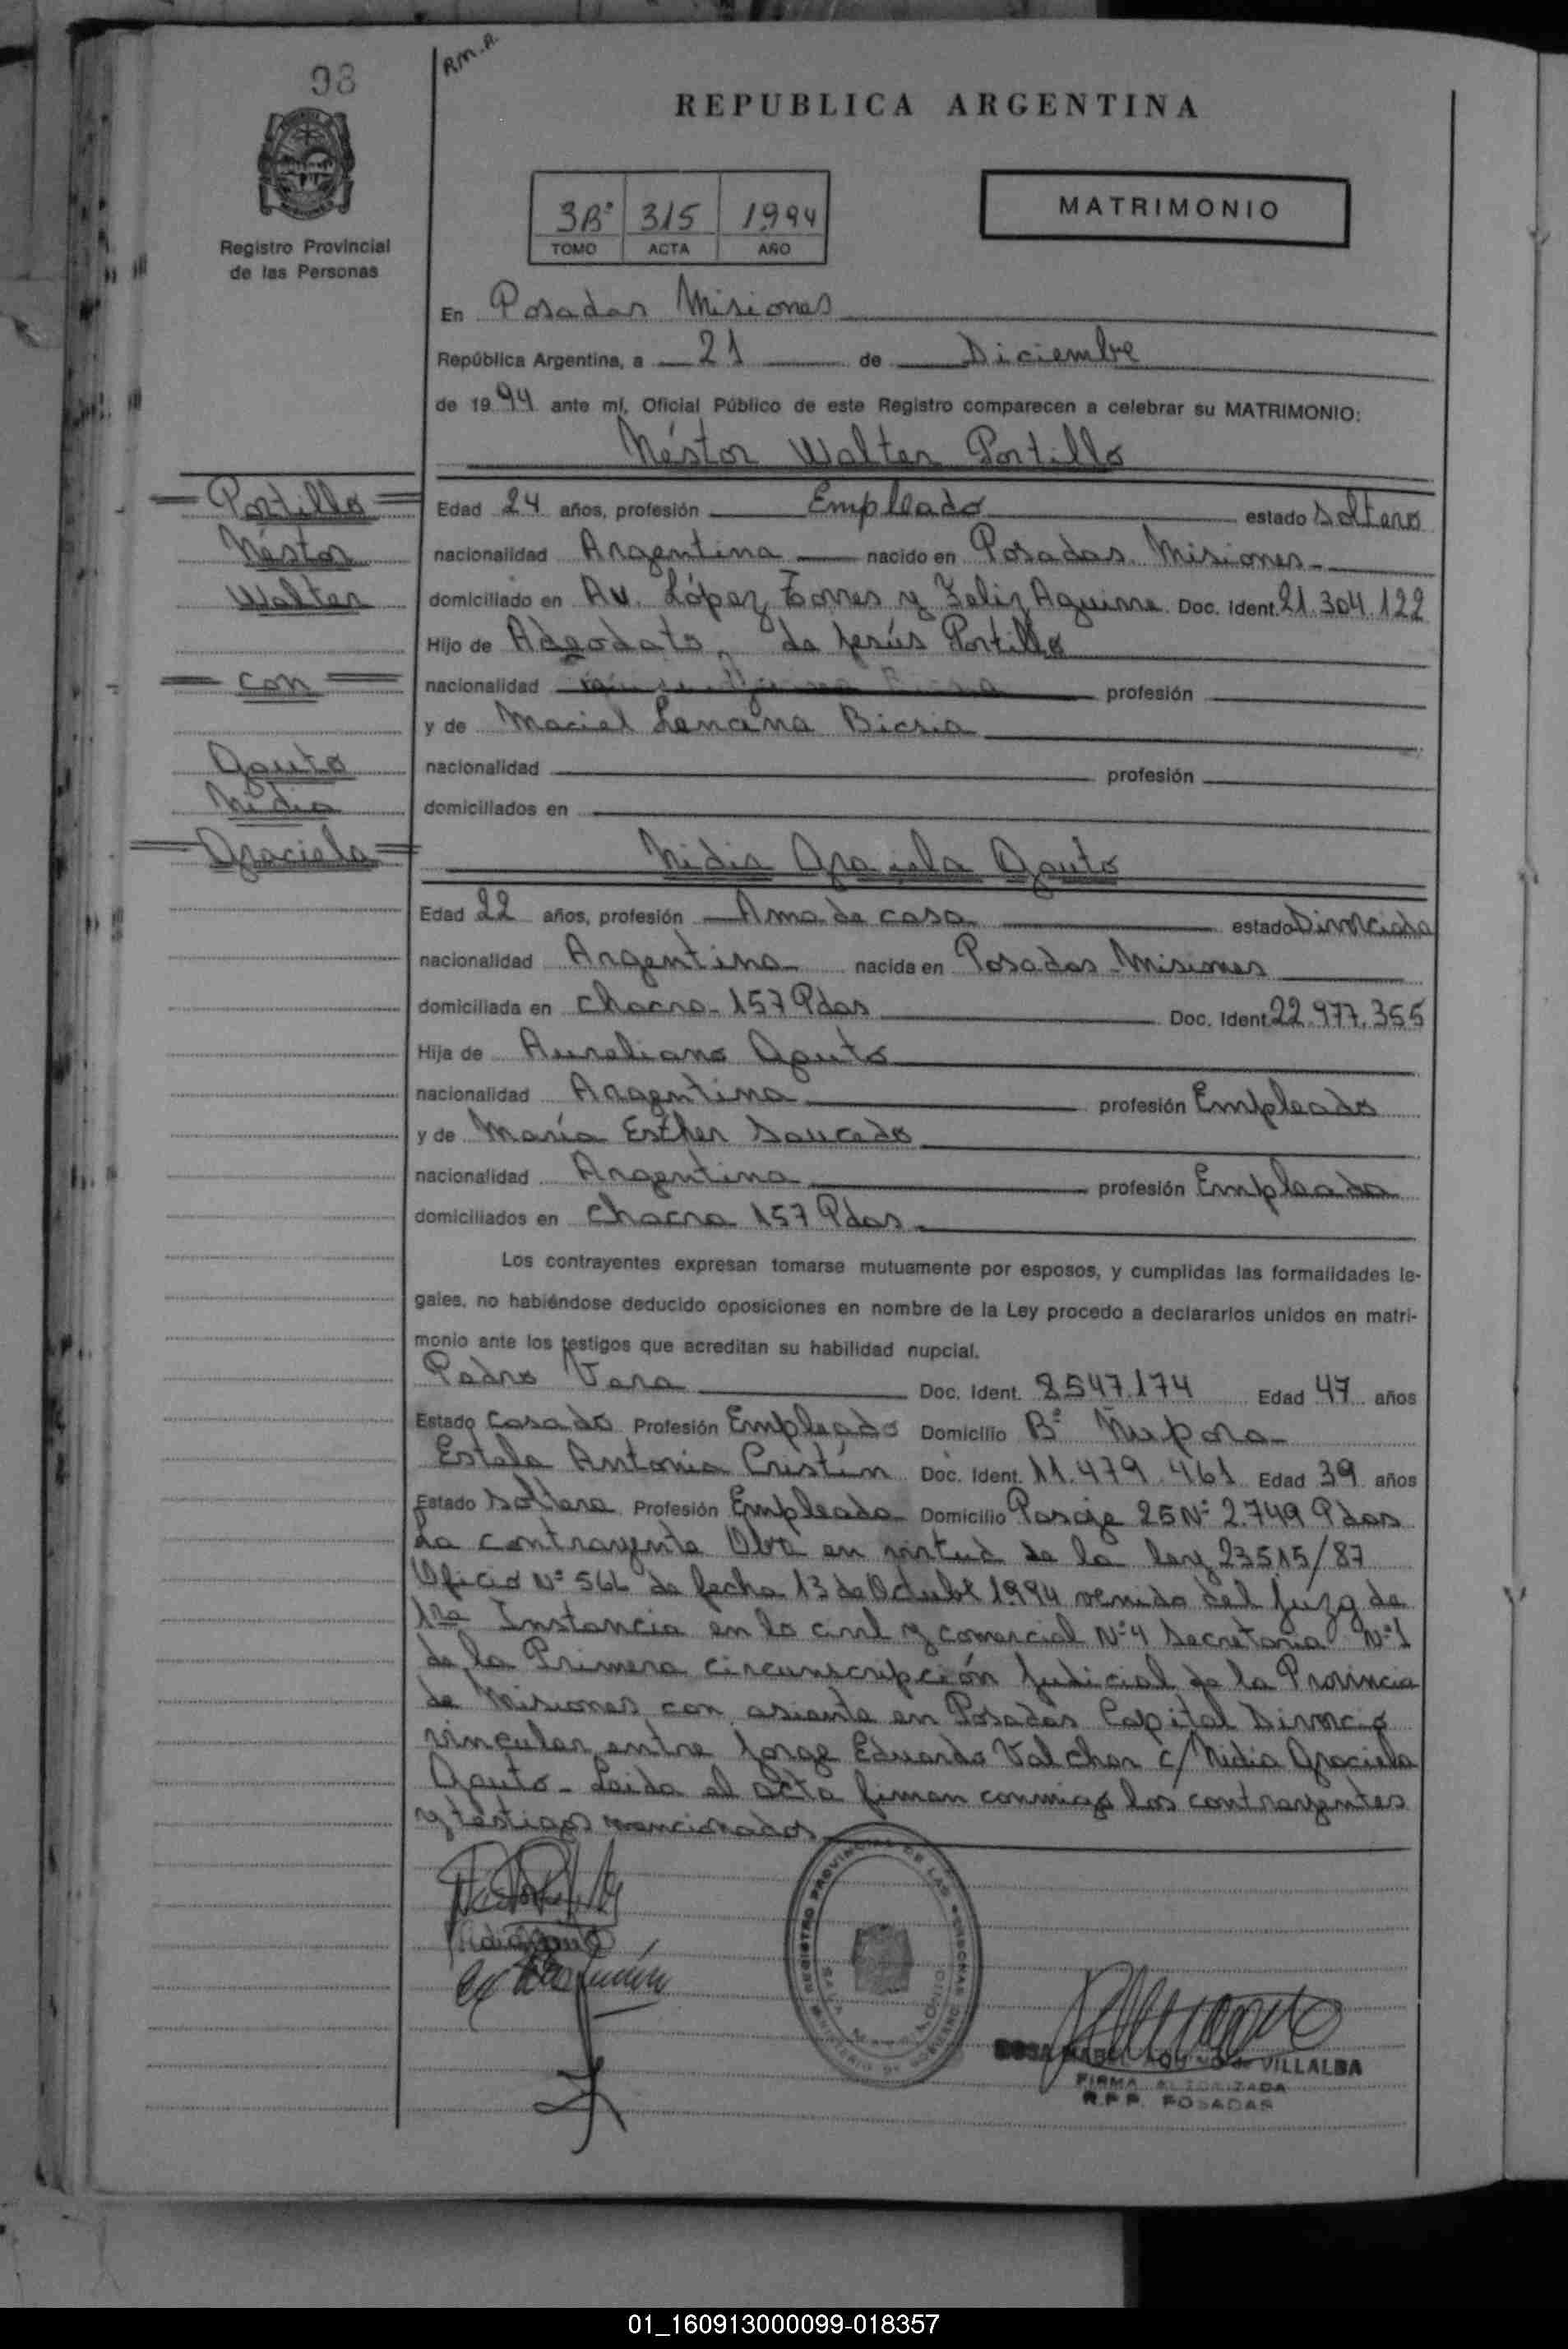 98
R.M.A.
REPUBLICA ARGENTINA
3Bº 315 1994
TOMO ACTA AÑO
MATRIMONIO
Registro Provincial
de las Personas
En Posadas Misiones
República Argentina, a 21 de Diciembre
de 1994 ante mí, Oficial Público de este Registro comparecen a celebrar su MATRIMONIO:
Néstor Walter Portillo
Portillo
Néstor
Walter
con
Agouto
Nidia
Graciela
Edad 24 años, profesión Empleado estado soltero
nacionalidad Argentina nacido en Posadas Misiones
domiciliado en Av. López Torres y Feliz Aguirre Doc. Ident. 21.304.122
Hijo de Adeodato de Jesús Portillo
nacionalidad profesión
y de Maciel
nacionalidad profesión
domiciliados en
Nidia Graciela Agouto
Edad 22 años, profesión Ama de casa estado Divorciada
nacionalidad Argentina nacida en Posadas Misiones
domiciliada en chacra 157 Pdas Doc. Ident. 22.977.355
Hija de Aureliano Agouto
nacionalidad Argentina profesión Empleado
y de María Esther Saucedo
nacionalidad Argentina profesión Empleada
domiciliados en chacra 157 Pdas
Los contrayentes expresan tomarse mutuamente por esposos, y cumplidas las formalidades le-
gales, no habiéndose deducido oposiciones en nombre de la Ley procedo a declararlos unidos en matri-
monio ante los testigos que acreditan su habilidad nupcial.
Pedro Vera Doc. Ident. 8547.174 Edad 47 años
Estado Casado Profesión Empleado Domicilio Bº Ñu pora
Estela Antonia Cristin Doc. Ident. 11.479.461 Edad 39 años
Estado soltera Profesión Empleada Domicilio Pasaje 25 Nº 2.749 Pdas
La contrayente en virtud de la ley 23515/87
Oficio Nº de fecha 13 de Octubre 1994 venido del Juzg de
1ra Instancia en lo civil y comercial Nº 4 Secretaria Nº 1
de la Primera circunscripción Judicial de la Provincia
de Misiones con asiento en Posadas Capital Divorcio
vincular entre Jorge Eduardo c/ Nidia Graciela
Agouto Leida el acta firman conmigo los contrayentes
y testigos mencionados
REGISTRO PROVINCIAL DE LAS PERSONAS
MINISTERIO DE GOBIERNO
VILLALBA
FIRMA AUTORIZADA
R.P.P. POSADAS
01_160913000099-018357